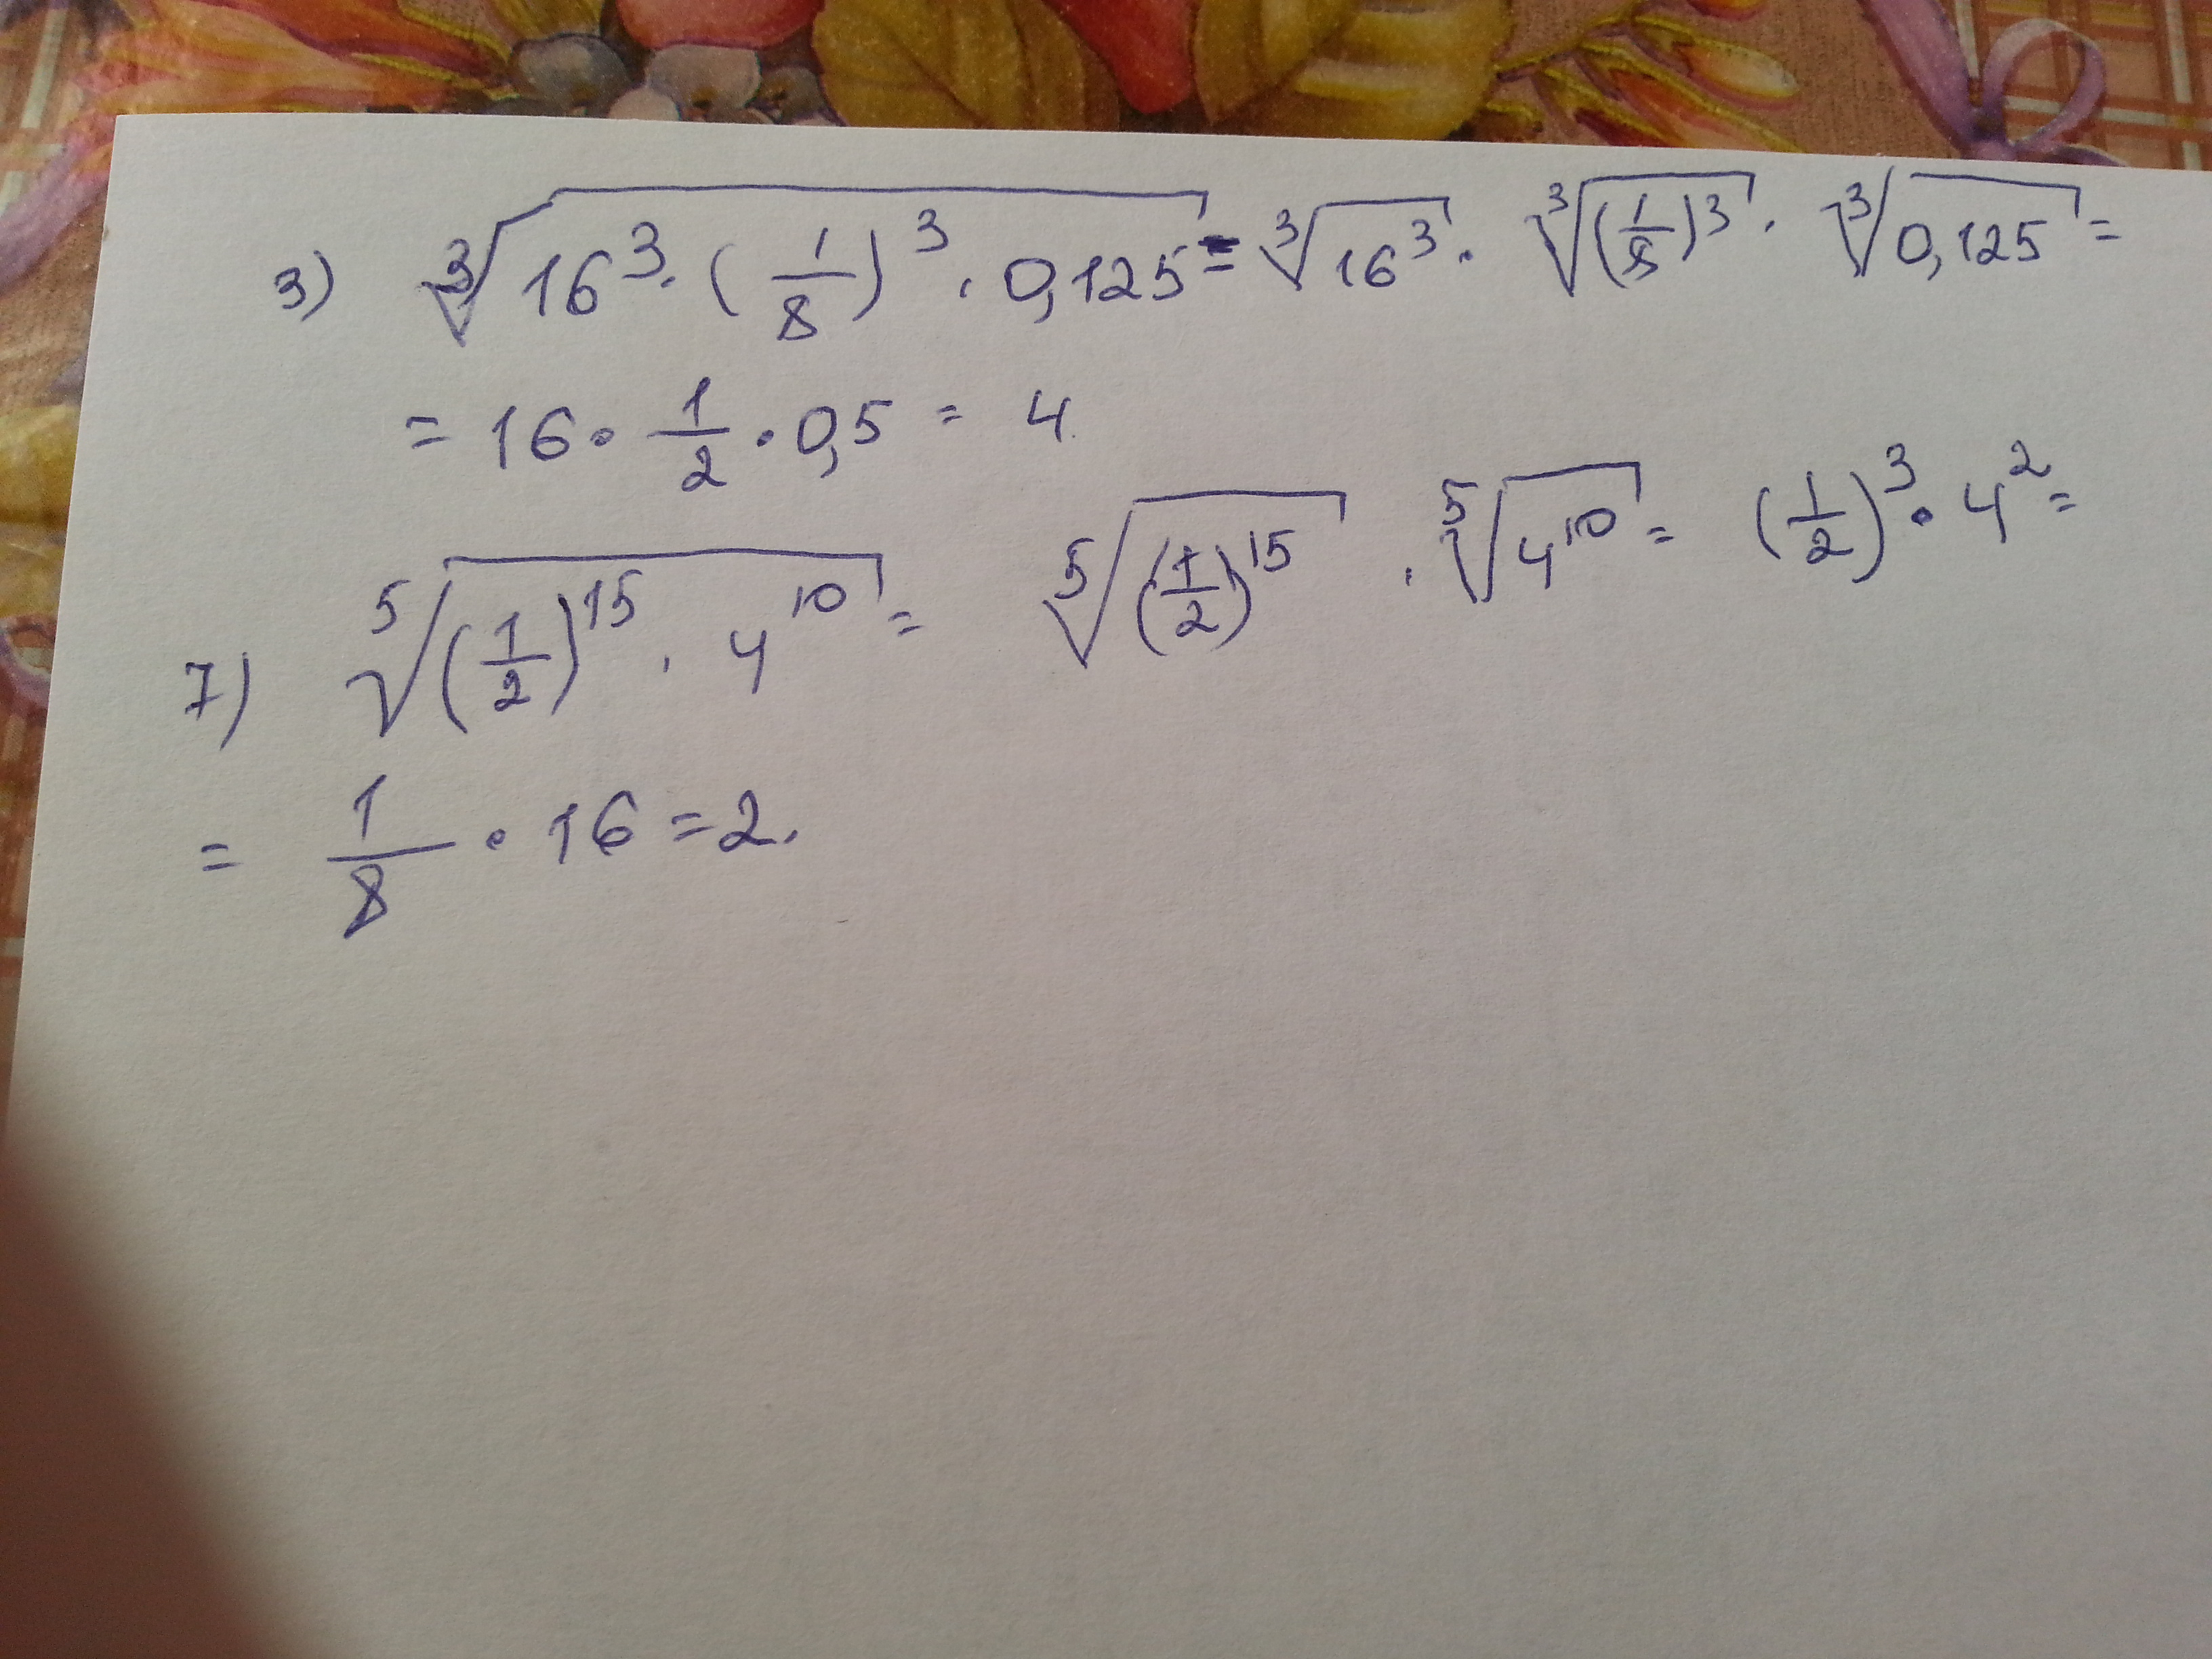 3) ∛(16³ · (1/8)³ · 0,125) = ∛(16³) · ∛((1/8)³) · ∛(0,125) =
= 16 · 1/2 · 0,5 = 4
7) ⁵√((1/2)¹⁵ · 4¹⁰) = ⁵√((1/2)¹⁵) · ⁵√(4¹⁰) = (1/2)³ · 4² =
= 1/8 · 16 = 2.